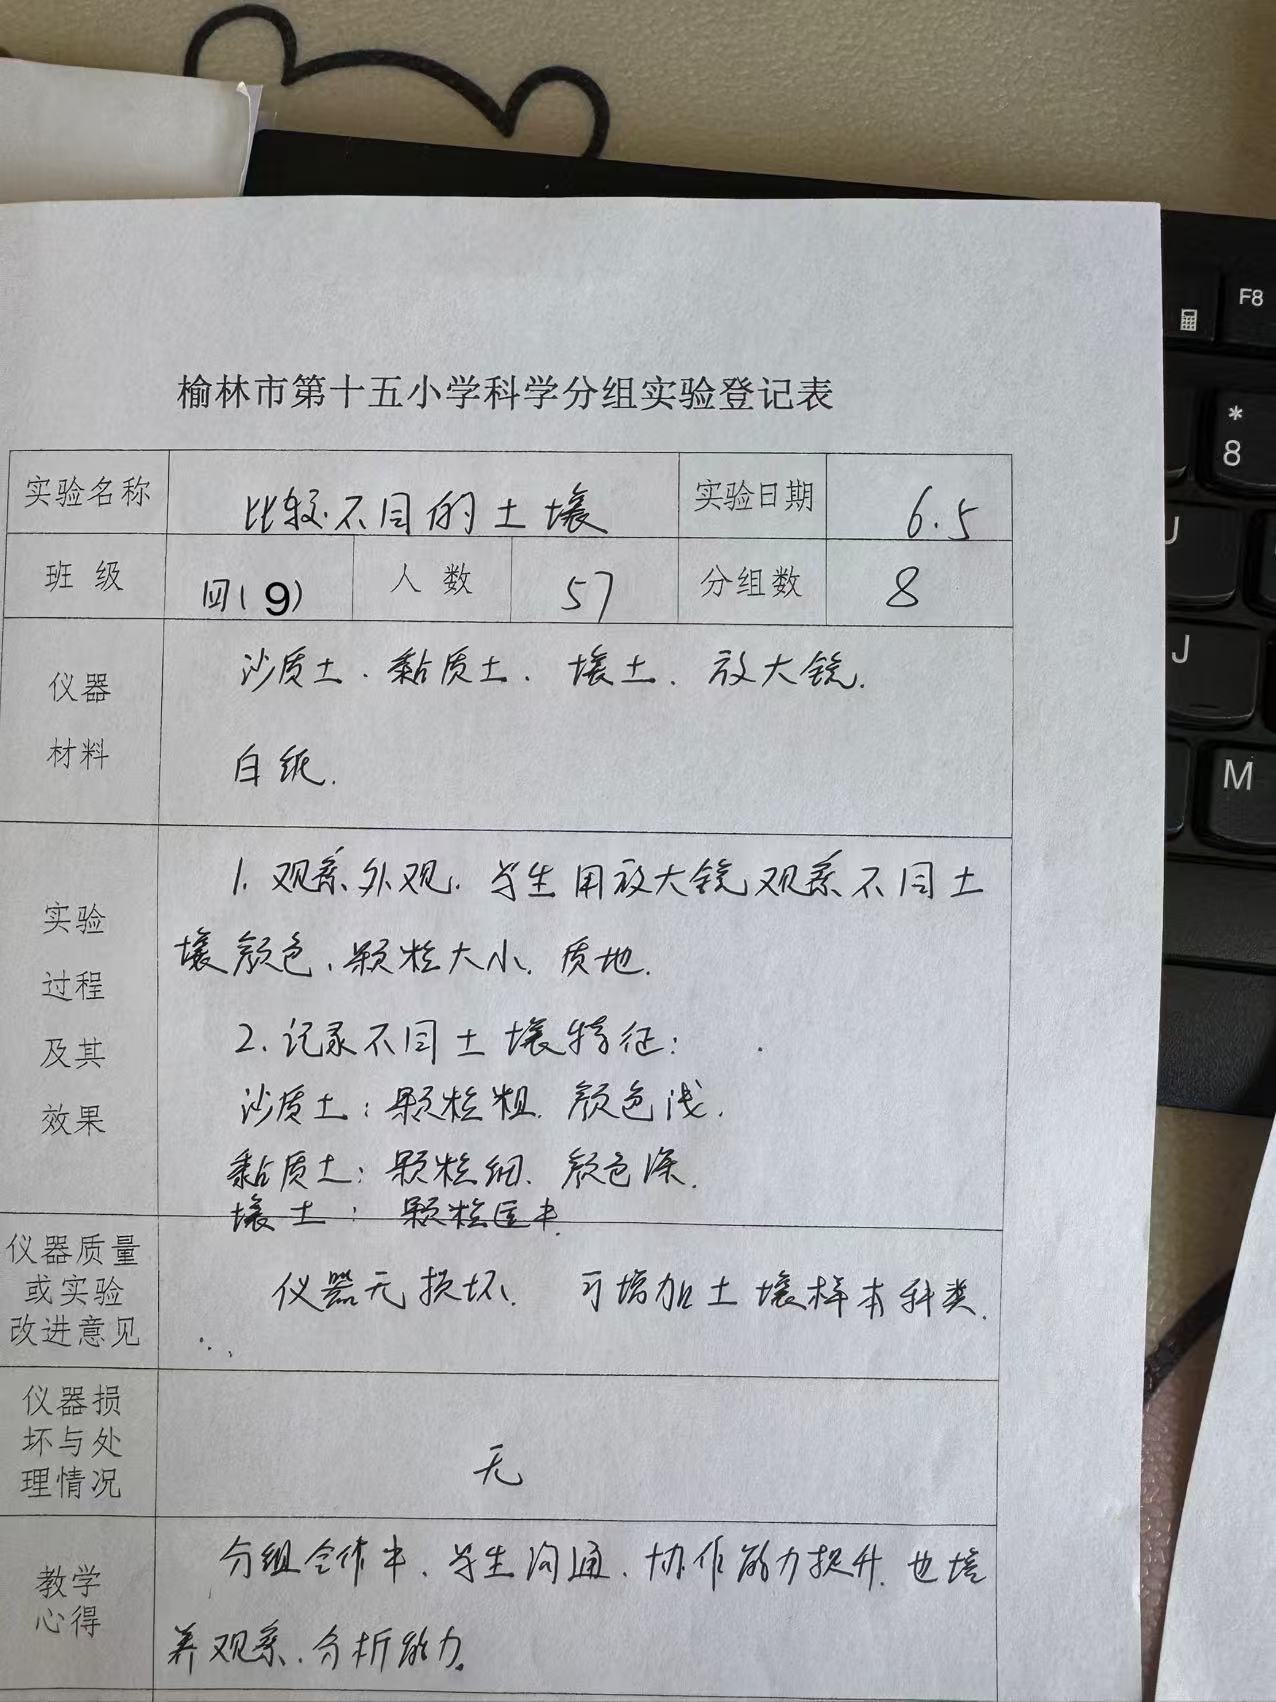 榆林市第十五小学科学分组实验登记表
实验名称 比较不同的土壤 实验日期 6.5
班级 四(9) 人数 57 分组数 8
仪器材料
沙质土、黏质土、壤土、放大镜.
白纸.
实验过程及其效果
1. 观察外观. 学生用放大镜观察不同土
壤颜色、颗粒大小、质地.
2. 记录不同土壤特征:
沙质土: 颗粒粗、颜色浅.
黏质土: 颗粒细、颜色深.
壤土: 颗粒居中.
仪器质量或实验改进意见
仪器无损坏. 可增加土壤样本种类.
仪器损坏与处理情况
无
教学心得
分组合作中、学生沟通、协作能力提升. 也培
养观察、分析能力.
F8
*
8
J
J
M